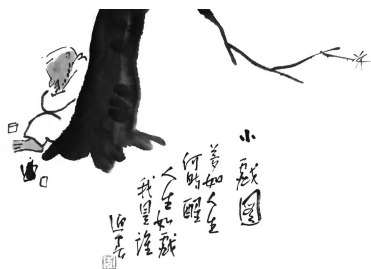 小戲图
夢如人生
何时醒
人生如戲
我是誰